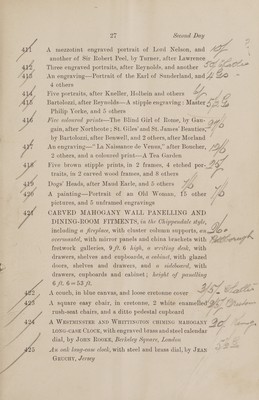 27 Second Day
411 A mezzotint engraved portrait of Lord Nelson, and
another of Sir Robert Peel, by Turner, after Lawrence
412 Three engraved portraits, after Reynolds, and another
413 An engraving—Portrait of the Earl of Sunderland, and
4 others
414 Five portraits, after Kneller, Holbein and others
415 Bartolozzi, after Reynolds—A stipple engraving: Master
Philip Yorke, and 5 others
416 Five coloured prints—The Blind Girl of Rome, by Gaugain, after Northcote; St. Giles' and St. James' Beauties,
by Bartolozzi, after Benwell, and 2 others, after Morland
417 An engraving—" La Naissance de Venus," after Boucher,
2 others, and a coloured print—A Tea Garden
418 Five brown stipple prints, in 2 frames, 4 etched portraits, in 2 carved wood frames, and 8 others
419 Dogs' Heads, after Maud Earle, and 5 others
420 A painting—Portrait of an Old Woman, 15 other
pictures, and 5 unframed engravings
421 CARVED MAHOGANY WALL PANELLING AND
DINING-ROOM FITMENTS, in the Chippendale style,
including a fireplace, with cluster column supports, an
overmantel, with mirror panels and china brackets with
fretwork galleries, 9 ft. 6 high, a writing desk, with
drawers, shelves and cupboards, a cabinet, with glazed
doors, shelves and drawers, and a sideboard, with
drawers, cupboards and cabinet; height of panelling
6 ft. 6 = 53 ft.
422 A couch, in blue canvas, and loose cretonne cover
423 A square easy chair, in cretonne, 2 white enamelled
rush-seat chairs, and a ditto pedestal cupboard
424 A WESTMINSTER AND WHITTINGTON CHIMING MAHOGANY
LONG-CASE CLOCK, with engraved brass and steel calendar
dial, by JOHN ROOKE, Berkeley Square, London
425 An oak long-case clock, with steel and brass dial, by JEAN
GRUCHY, Jersey